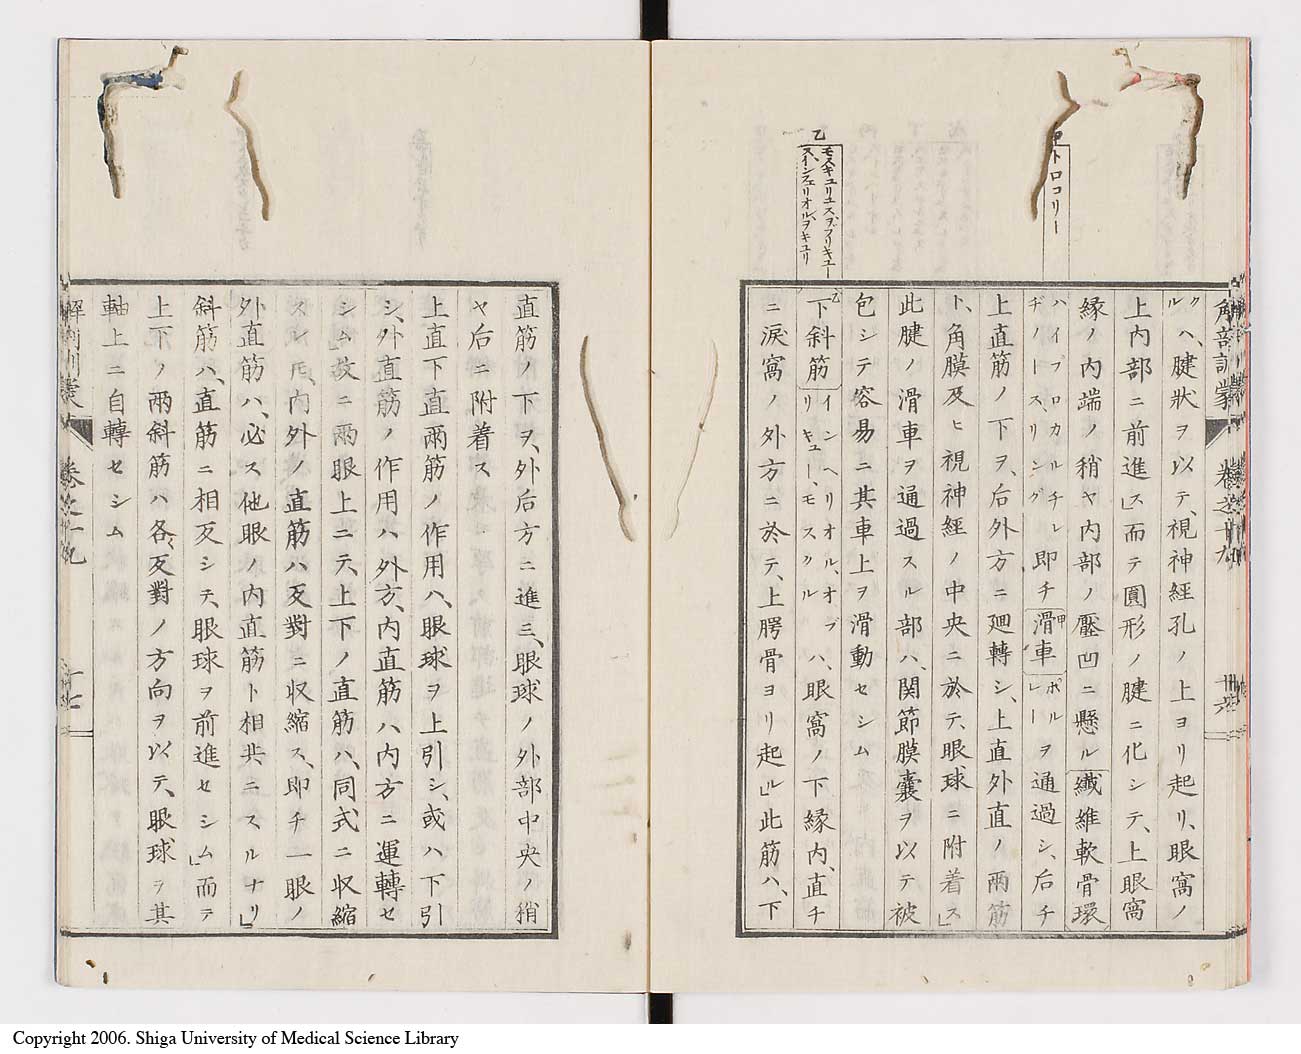 甲 トロコリー
乙 モスキュリュスヲブリキュー
スインフェリオルヲキュリ
解剖訓蒙 卷之十九 卅六
クル〵ハ、腱狀ヲ以テ、視神経孔ノ上ヨリ起リ、眼窩ノ
上内部ニ前進ス」而テ圓形ノ腱ニ化シテ、上眼窩
縁ノ内端ノ稍ヤ内部ノ壓凹ニ懸ル纎維軟骨環
ハイブロカルチレヂノースリング即チ甲滑車ポルレーヲ通過シ、后チ
上直筋ノ下ヲ、后外方ニ廻轉シ、上直外直ノ兩筋
ト、角膜及ヒ視神経ノ中央ニ於テ、眼球ニ附着ス」
此腱ノ滑車ヲ通過スル部ハ、関節膜嚢ヲ以テ被
包シテ容易ニ其車上ヲ滑動セシム
乙下斜筋インヘリオル、オブリキュー、モスクルハ、眼窩ノ下縁内、直チ
ニ涙窩ノ外方ニ於テ、上腭骨ヨリ起ル」此筋ハ、下
直筋ノ下ヲ、外后方ニ進三、眼球ノ外部中央ノ稍
ヤ后ニ附着ス
上直下直兩筋ノ作用ハ、眼球ヲ上引シ、或ハ下引
シ、外直筋ノ作用ハ外方、内直筋ハ内方ニ運轉セ
シム」故ニ兩眼上ニテ、上下ノ直筋ハ、同式ニ収縮
スレ𪜈、内外ノ直筋ハ反對ニ収縮ス、即チ一眼ノ
外直筋ハ、必ス他眼ノ内直筋ト相共ニスルナリ」
斜筋ハ、直筋ニ相反シテ、眼球ヲ前進セシム」而テ
上下ノ兩斜筋ハ各〻反對ノ方向ヲ以テ、眼球ヲ其
軸上ニ自轉セシム
解剖訓蒙 卷之十九